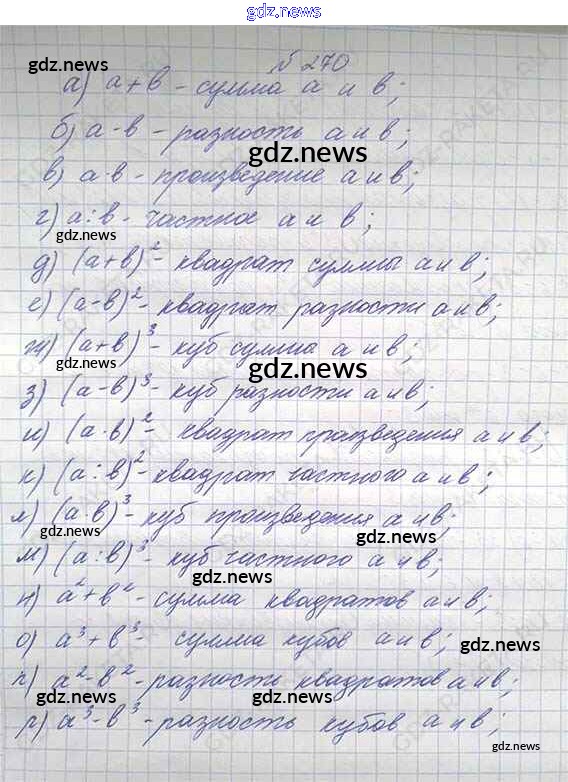 gdz.news
gdz.news
№ 270
gdz.news
а) а+в - сумма а и в;
gdz.news
б) а-в - разность а и в;
gdz.news
в) а·в - произведение а и в;
г) а:в - частное а и в;
gdz.news
д) (а+в)² - квадрат суммы а и в;
gdz.news
е) (а-в)² - квадрат разности а и в;
ж) (а+в)³ - куб сумма а и в;
gdz.news
gdz.news
з) (а-в)³ - куб разности а и в;
и) (а·в)² - квадрат произведения а и в;
gdz.news
к) (а:в)² - квадрат частного а и в;
л) (а·в)³ - куб произведения а и в;
gdz.news
м) (а:в)³ - куб частного а и в;
gdz.news
н) а²+в² - сумма квадратов а и в;
о) а³+в³ - сумма кубов а и в;
gdz.news
п) а²-в² - разности квадратов а и в;
gdz.news
gdz.news
р) а³-в³ - разность кубов а и в;
gdz.news